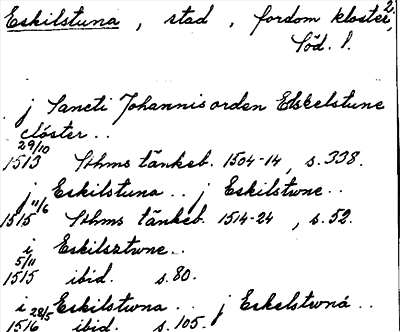 Eskilstuna, stad, fordom kloster, 2.
Söd. l.
j Sancti Johannis orden Edskelstune
clöster..
29/10
1513 Sthms tänkeb. 1504-14, s. 338.
j Eskilstuna.. j Eskilstwne..
11/6
1515 Sthms tänkeb. 1514-24, s. 52.
i Eskilsztwne..
5/11
1515 ibid. s. 80.
i Eskilstwna.. j Eskelstwna..
28/5
1516 ibid. s. 105.